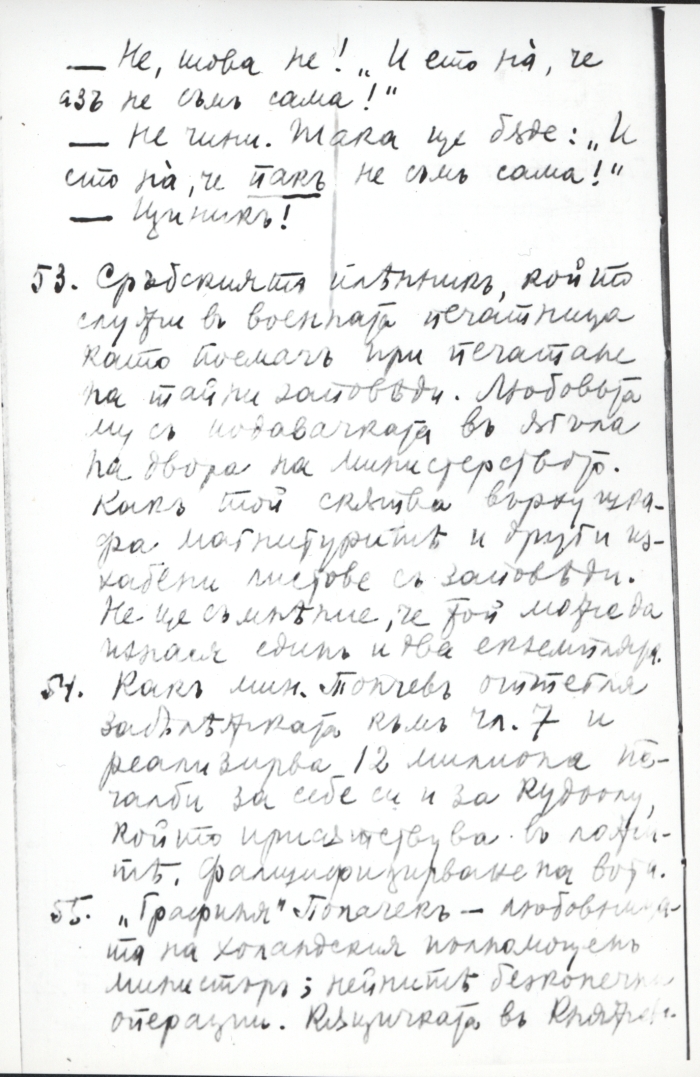 — Не, това не! „И ето нà, че
азъ не съмь сама!"
— Не чини. Така ще бѫде: „И
ето нà, че пакъ не съмь сама!"
— Циникъ!
53. Сръбскиятъ плѣнникъ, който
служи въ военната печатница
като поемачъ при печатане
на тайни заповѣди. Любовьта
му съ подавачката въ ѫгъла
на двора на министерството.
Какъ той скѫтва върху шка-
фа магнитуритѣ и други из-
хабени листове съ заповѣди.
Не ще съмнѣние, че той може да
изнася единъ и два екземпляра.
54. Какъ мин. Топчевъ
забѣлѣжката къмъ чл. 7 и
реализирва 12 милиона пе-
чалби за себе си и за Кудоолу,
който присѫтствува въ
тѣ. Фалшифизирване на
55. „Графиня" Попачекъ — любовница-
та на холандския пълномощенъ
министъръ; нейнитѣ безконечни
операции. Кѫщичката въ Княжево.